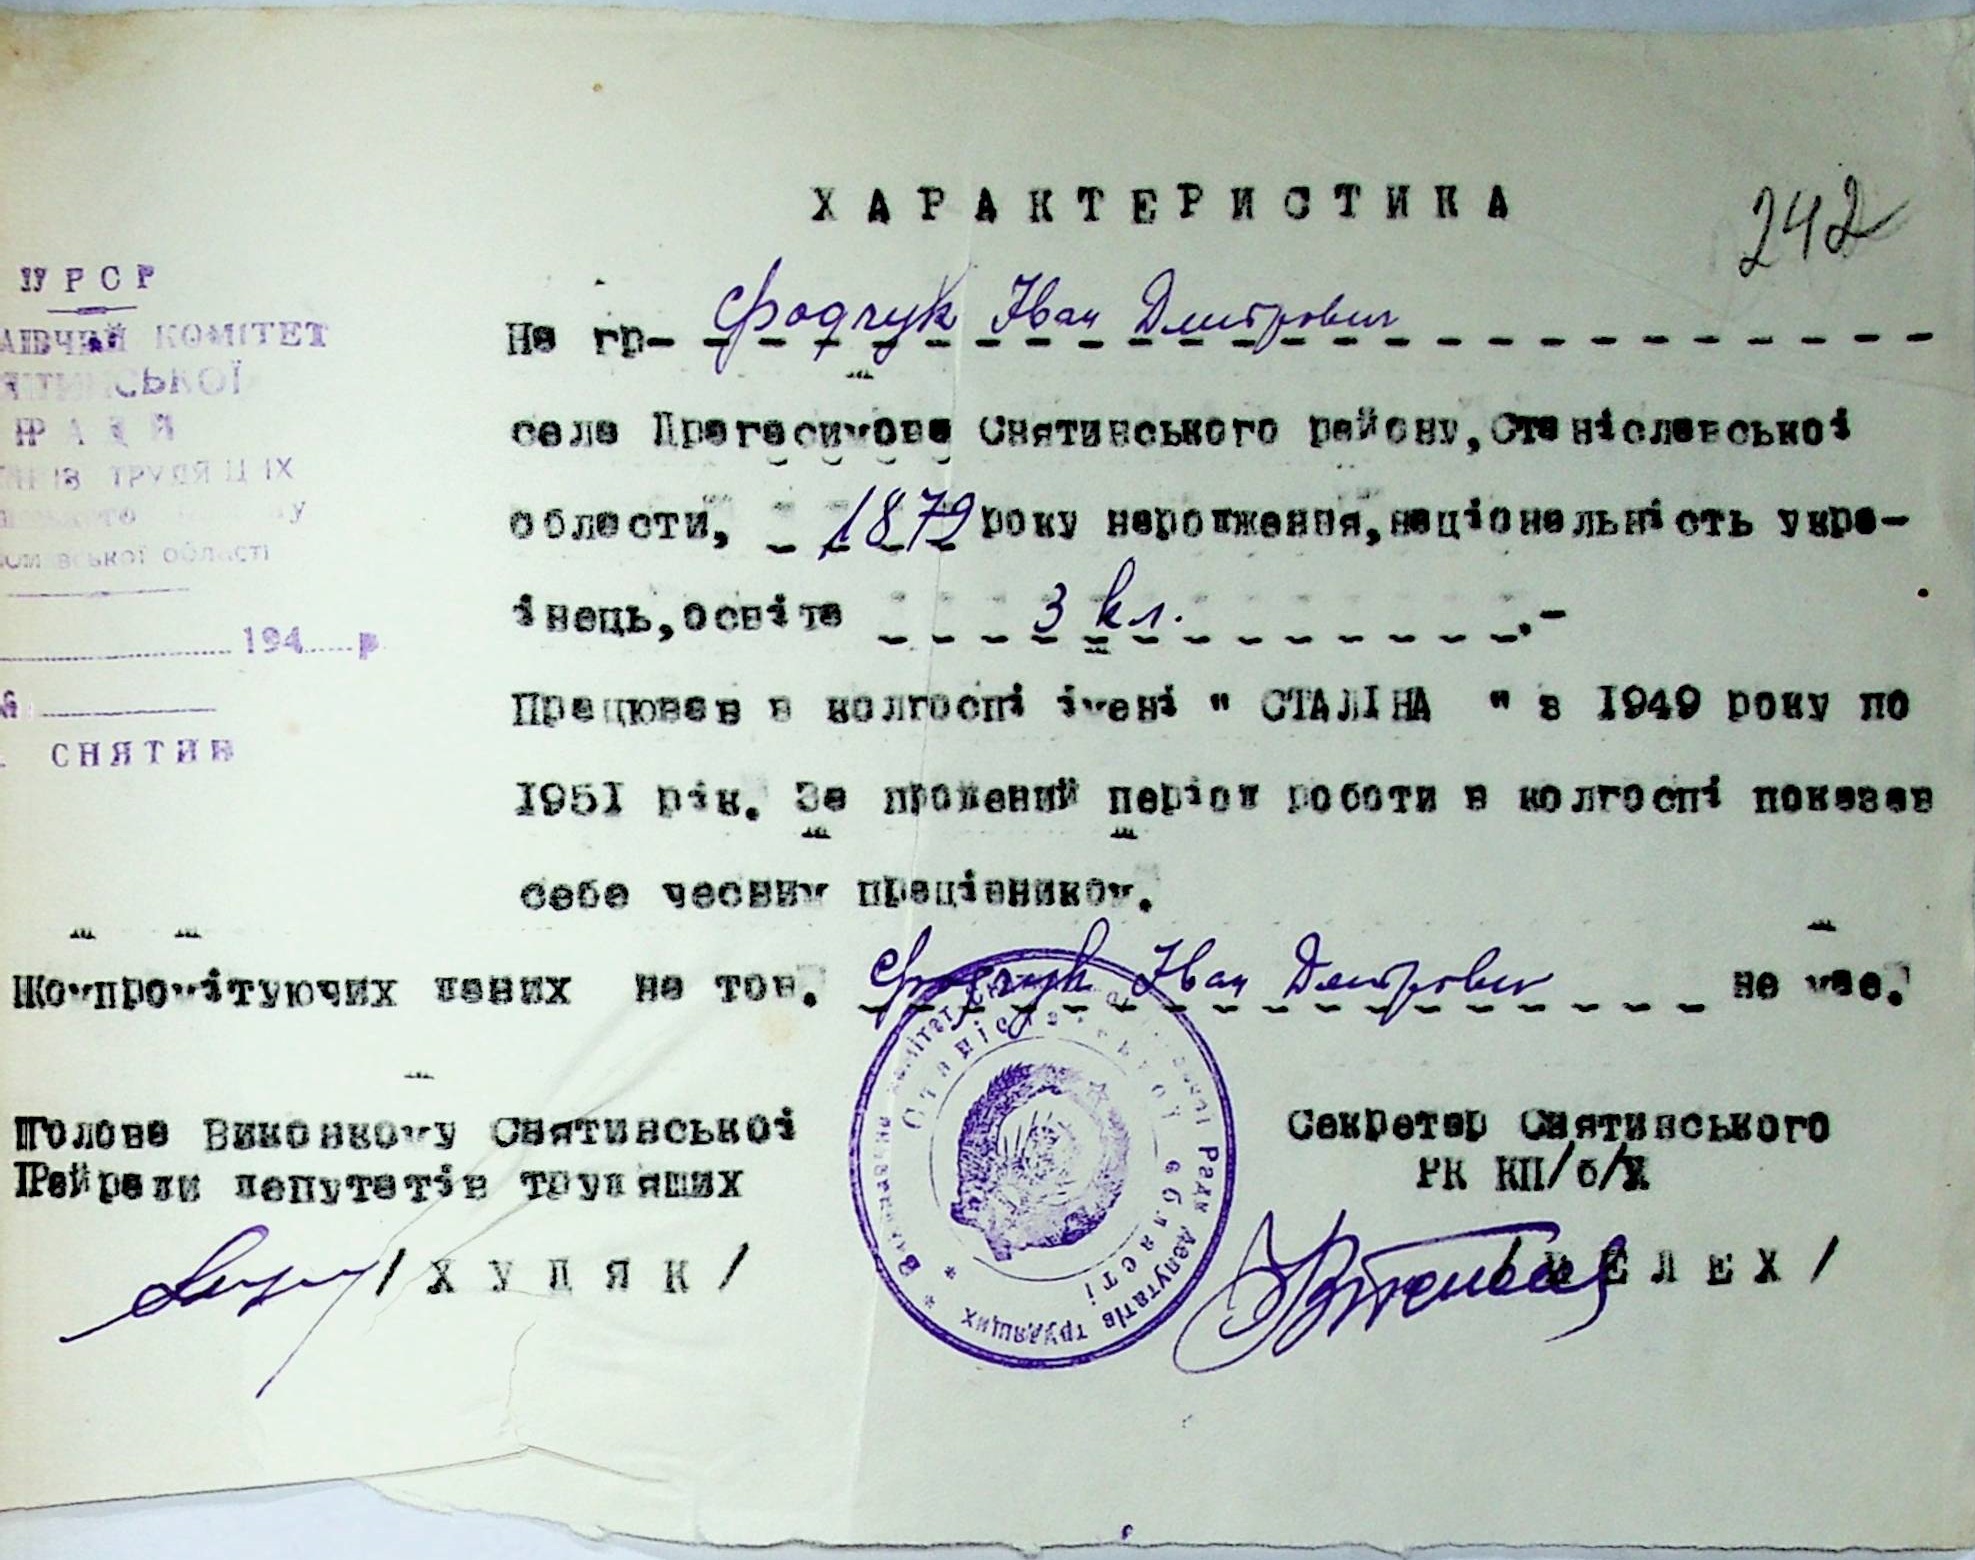 ХАРАКТЕРИСТИКА
242
УРСР
КОМІТЕТ
ТРУДЯЩИХ
області
194 р
СНЯТИН
На гр- Фодчук Іван Дмитрович
села Драгасимова Снятинського району, Станіславської
области, 1879 року народження, національність укра-
інець, освіта 3 кл. .-
Працював в колгоспі імені " СТАЛІНА " з 1949 року по
1951 рік. За проведений період роботи в колгоспі показав
себе чесним працівником.
Компромітуючих даних на тов. Фодчук Іван Дмитрович не має.
Голова Виконкому Снятинської
Райради депутатів трудящих
/ХУДЯК/
Секретар Снятинського
РК КП/б/У
/ВЕЛЕХ/
Станіславської області
Ради депутатів трудящих